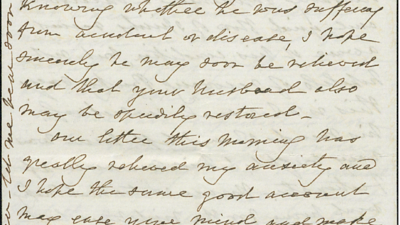 Knowing whether he was suffering
from accident or disease, I hope
sincerely he may soon be relieved
and that your Husband also
may be speedily restored -
Our letter this Morning has
greatly relieved my anxiety and
I hope the same good account
may ease your mind and make